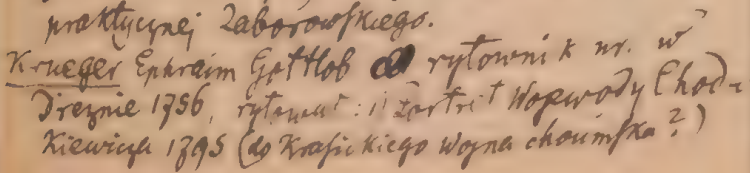 praktycznej Zaborowskiego.
Krueger Ephraim Gottlob rytownik ur. w
Dreznie 1756, rytował: 1) Portret Wojewody Chod-
kiewicza 1795 (do Krasickiego Wojna chocimska?)